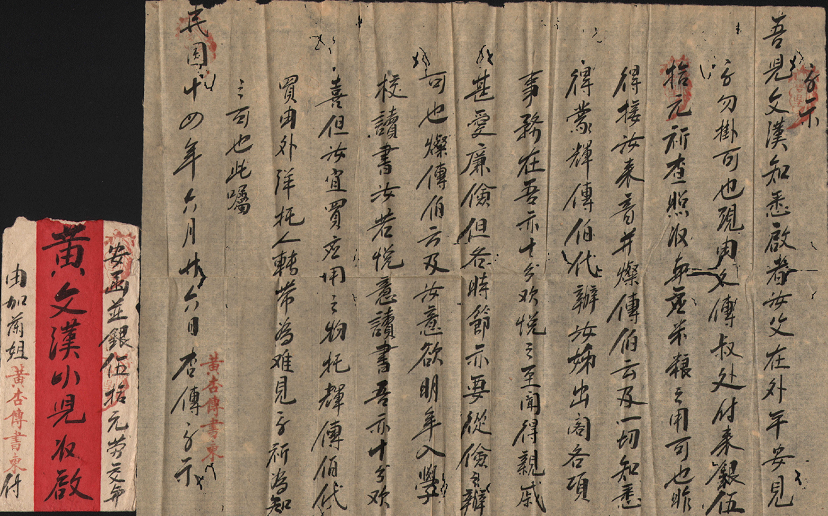 字示
吾見文漢知悉啟者汝父在外平安見
字勿掛可也現由文傳叔处付来銀伍
拾元祈查照收東 米糧之用可也昨
得接汝来音并燦傳伯云及一切知悉
得蒙輝傳伯代辦汝姊出閣各項
事務在吾亦十分欢悦之至聞得親戚
甚爱廉儉但各時節亦要從儉 辦
可也燦傳伯云及汝意欲明年入學
校讀書汝若悦意讀書吾亦十分欢
喜但汝宜買应用之物托輝傳伯代
買由外洋托人轉带為难見字祈為知
之可也此囑
民国十四年六月廿六日 杏傳字示
黃杏傳書柬
安函並銀伍拾元劳交
黃文漢小兒收啟
由加 姐 黃杏傳書柬付